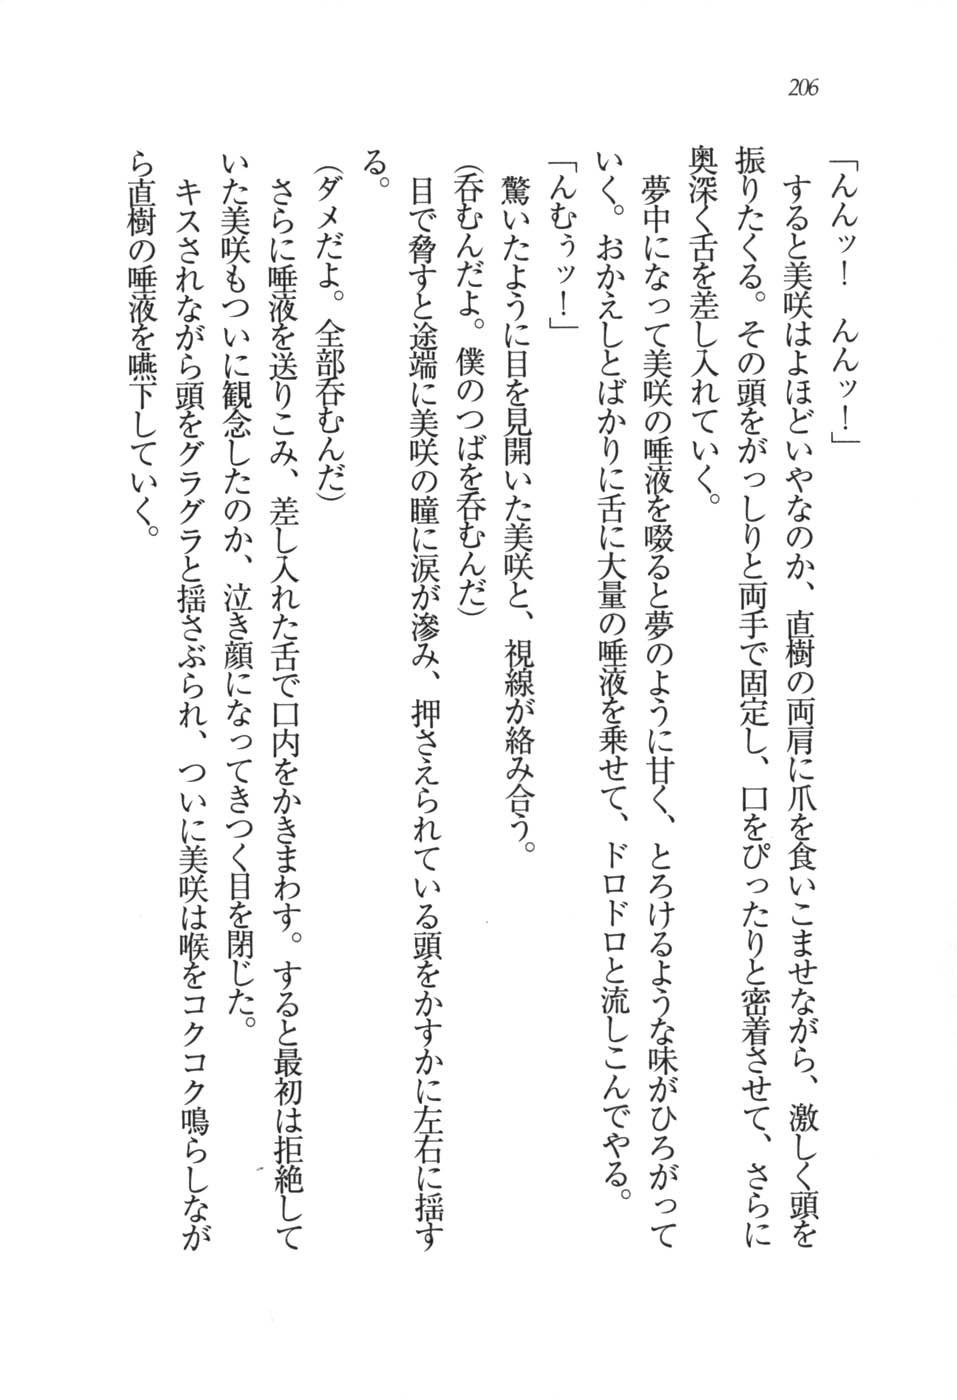 206
「んんッ！　んんッ！」
　すると美咲はよほどいやなのか、直樹の両肩に爪を食いこませながら、激しく頭を
振りたくる。その頭をがっしりと両手で固定し、口をぴったりと密着させて、さらに
奥深く舌を差し入れていく。
　夢中になって美咲の唾液を啜ると夢のように甘く、とろけるような味がひろがって
いく。おかえしとばかりに舌に大量の唾液を乗せて、ドロドロと流しこんでやる。
「んむぅッ！」
　驚いたように目を見開いた美咲と、視線が絡み合う。
（呑むんだよ。僕のつばを呑むんだ）
　目で脅すと途端に美咲の瞳に涙が滲み、押さえられている頭をかすかに左右に揺す
る。
（ダメだよ。全部呑むんだ）
　さらに唾液を送りこみ、差し入れた舌で口内をかきまわす。すると最初は拒絶して
いた美咲もついに観念したのか、泣き顔になってきつく目を閉じた。
　キスされながら頭をグラグラと揺さぶられ、ついに美咲は喉をコクコク鳴らしなが
ら直樹の唾液を嚥下していく。